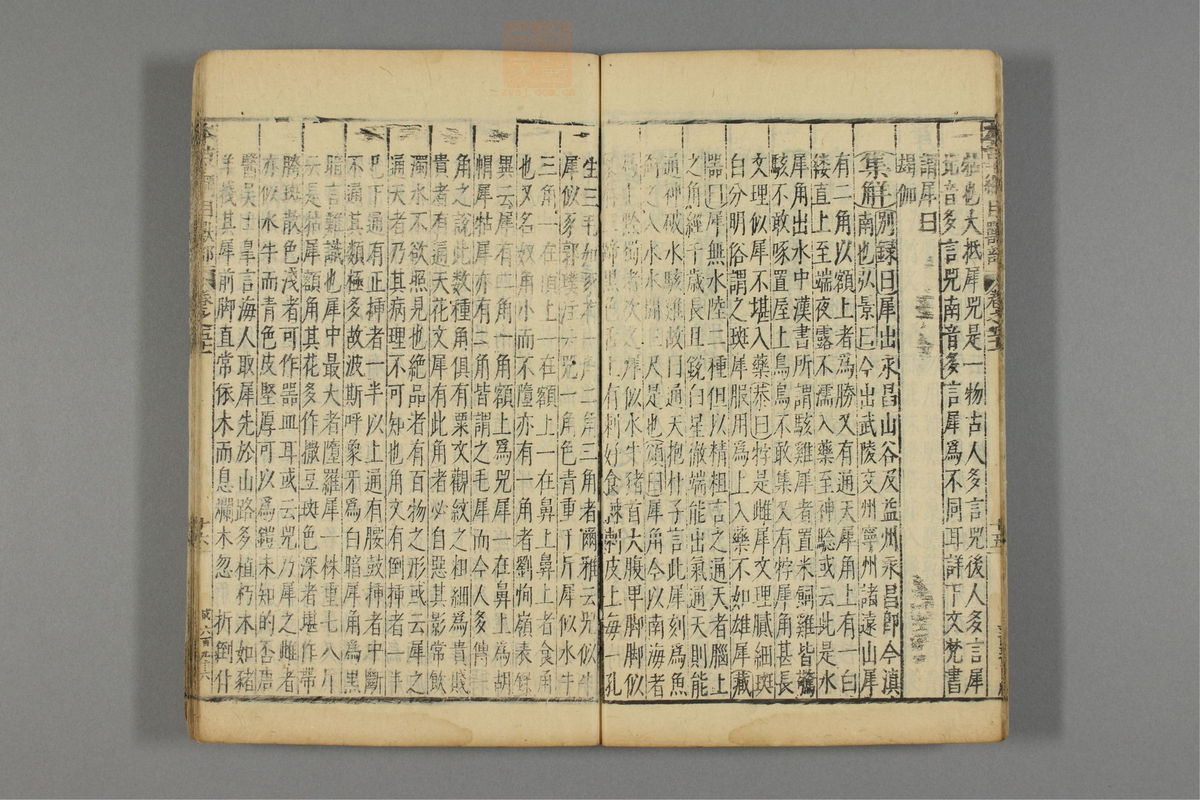 牯也大抵犀兕是一物古人多言兕後人多言犀
北音多言兕南音多言犀為不同耳詳下文梵書
謂犀曰
朅伽
集解別錄曰犀出永昌山谷及益州永昌郎今滇
南也弘景曰今出武陵交州寧州諸遠山犀
有二角以額上者為勝又有通天犀角上有一白
縷直上至端夜露不濡入藥至神驗或云此是水
犀角出水中漢書所謂駭雞犀者置米飼雞皆驚
駭不敢啄置屋上烏鳥不敢集又有牸犀角甚長
文理似犀不堪入藥恭曰牸是雌犀文理膩細斑
白分明俗謂之斑犀服用為上入藥不如雄犀藏
器曰犀無水陸二種但以精粗言之通天者腦上
之角經千歲長且銳白星徹端能出氣通天則能
通神破水駭雞故曰通天抱朴子言此犀刻為魚
銜之入水水開三尺是也頌曰犀角今以南海者
為上黔蜀者次之犀似水牛豬首大腹卑腳腳似
象有三蹄黑色舌上有刺好食棘刺皮上每一孔
生三毛如豕有一角二角三角者爾雅云兕似牛
犀似豕郭璞注云兕一角色青重千斤犀似水牛
三角一在頂上一在額上一在鼻上鼻上者食角
也又名奴角小而不隳亦有一角者劉恂嶺表錄
異云犀有二角一在額上為兕犀一在鼻上為胡
帽犀牯犀亦有二角皆謂之毛犀而今人多傳一
角之說此數種角俱有粟文觀紋之粗細為貴賤
貴者有通天花文犀有此角者必自惡其影常飲
濁水不欲照見也絕品者有百物之形或云犀之
通天者乃其病理不可知也角文有倒插者一半
已下通有正插者一半以上通有腰鼓插者中斷
不通其類極多故波斯呼象牙為白暗犀角為黑
暗言難識也犀中最大者墮羅犀一株重七八斤
云是牯犀額角其花多作撒豆斑色深者堪作帶
胯斑散色淺者可作器皿耳或云兕乃犀之雌者
亦似水牛而青色皮堅厚可以為鎧未知的否唐
醫吳士皋言海人取犀先於山路多植朽木如豬
羊棧其犀前腳直常依木而息爛木忽折倒仆